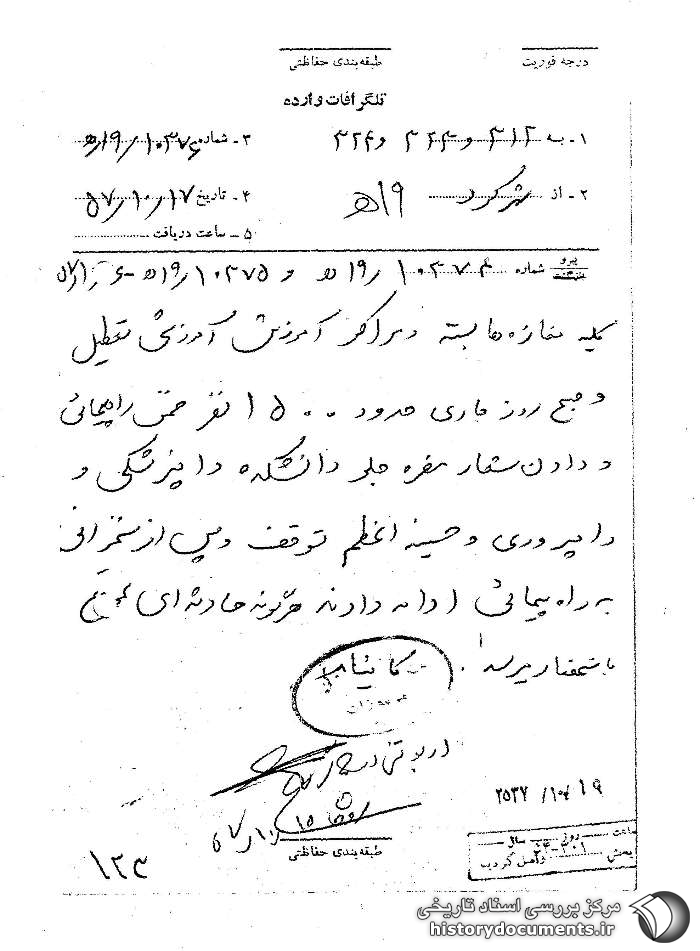 درجه فوریت
طبقه‌بندی حفاظتی
تلگرافات وارده
۱- به ۳۱۲ و ۳۴۴ و ۳۲۴
۳- شماره ۱۰۳۷۶/۱۹ھ
۲- از شهرکرد ۱۹ھ
۴- تاریخ ۵۷/۱۰/۱۷
۵- ساعت دریافت
پیرو شماره ۱۰۳۷۴/۱۹ھ و ۱۰۳۷۵/۱۹ھ-
کلیه مغازه‌ها بسته و مراکز آموزش آموزشی تعطیل
و صبح روز جاری حدود ۱۵۰۰ نفر ضمن راهپیمائی
و دادن شعار مضره جلو دانشکده دامپزشکی و
دامپروری و حسینه اعظم توقف و پس از سخنرانی
به راه پیمائی ادامه دادند هرگونه حادثه‌ای
باستحضار میرسد.
۲۵۳۷/۱۰/۱۹
ساعت روز سال
بخش واصل گردید
طبقه‌بندی حفاظتی
۱۲۳
مرکز بررسی اسناد تاریخی
historydocuments.ir